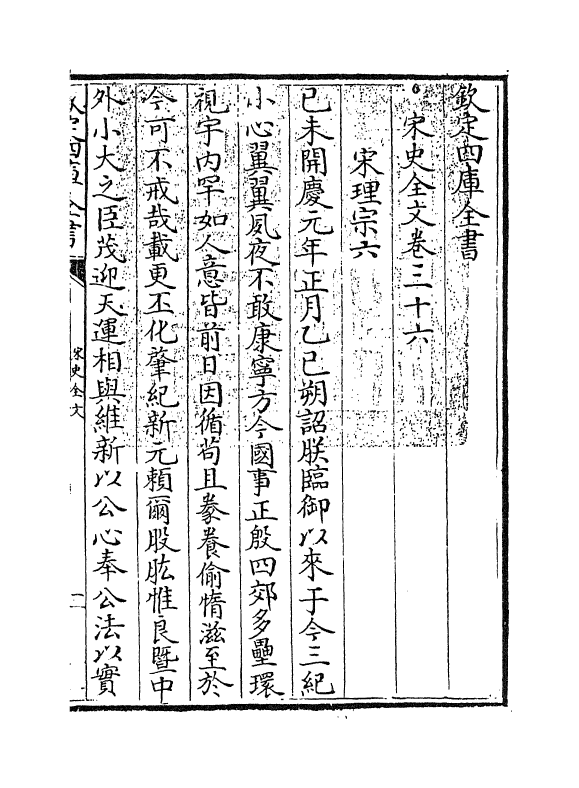 欽定四庫全書
宋史全文卷三十六
宋理宗六
己未開慶元年正月乙巳朔詔朕臨御以來于今三紀
小心翼翼夙夜不敢康寧方今國事正殷四郊多壘環
視宇内罕如人意皆前日因循茍且豢養偷惰滋至於
今可不戒哉載更丕化肇紀新元賴爾股肱惟良暨中
外小大之臣茂迎天運相與維新以公心奉公法以實
欽定四庫全書
宋史全文